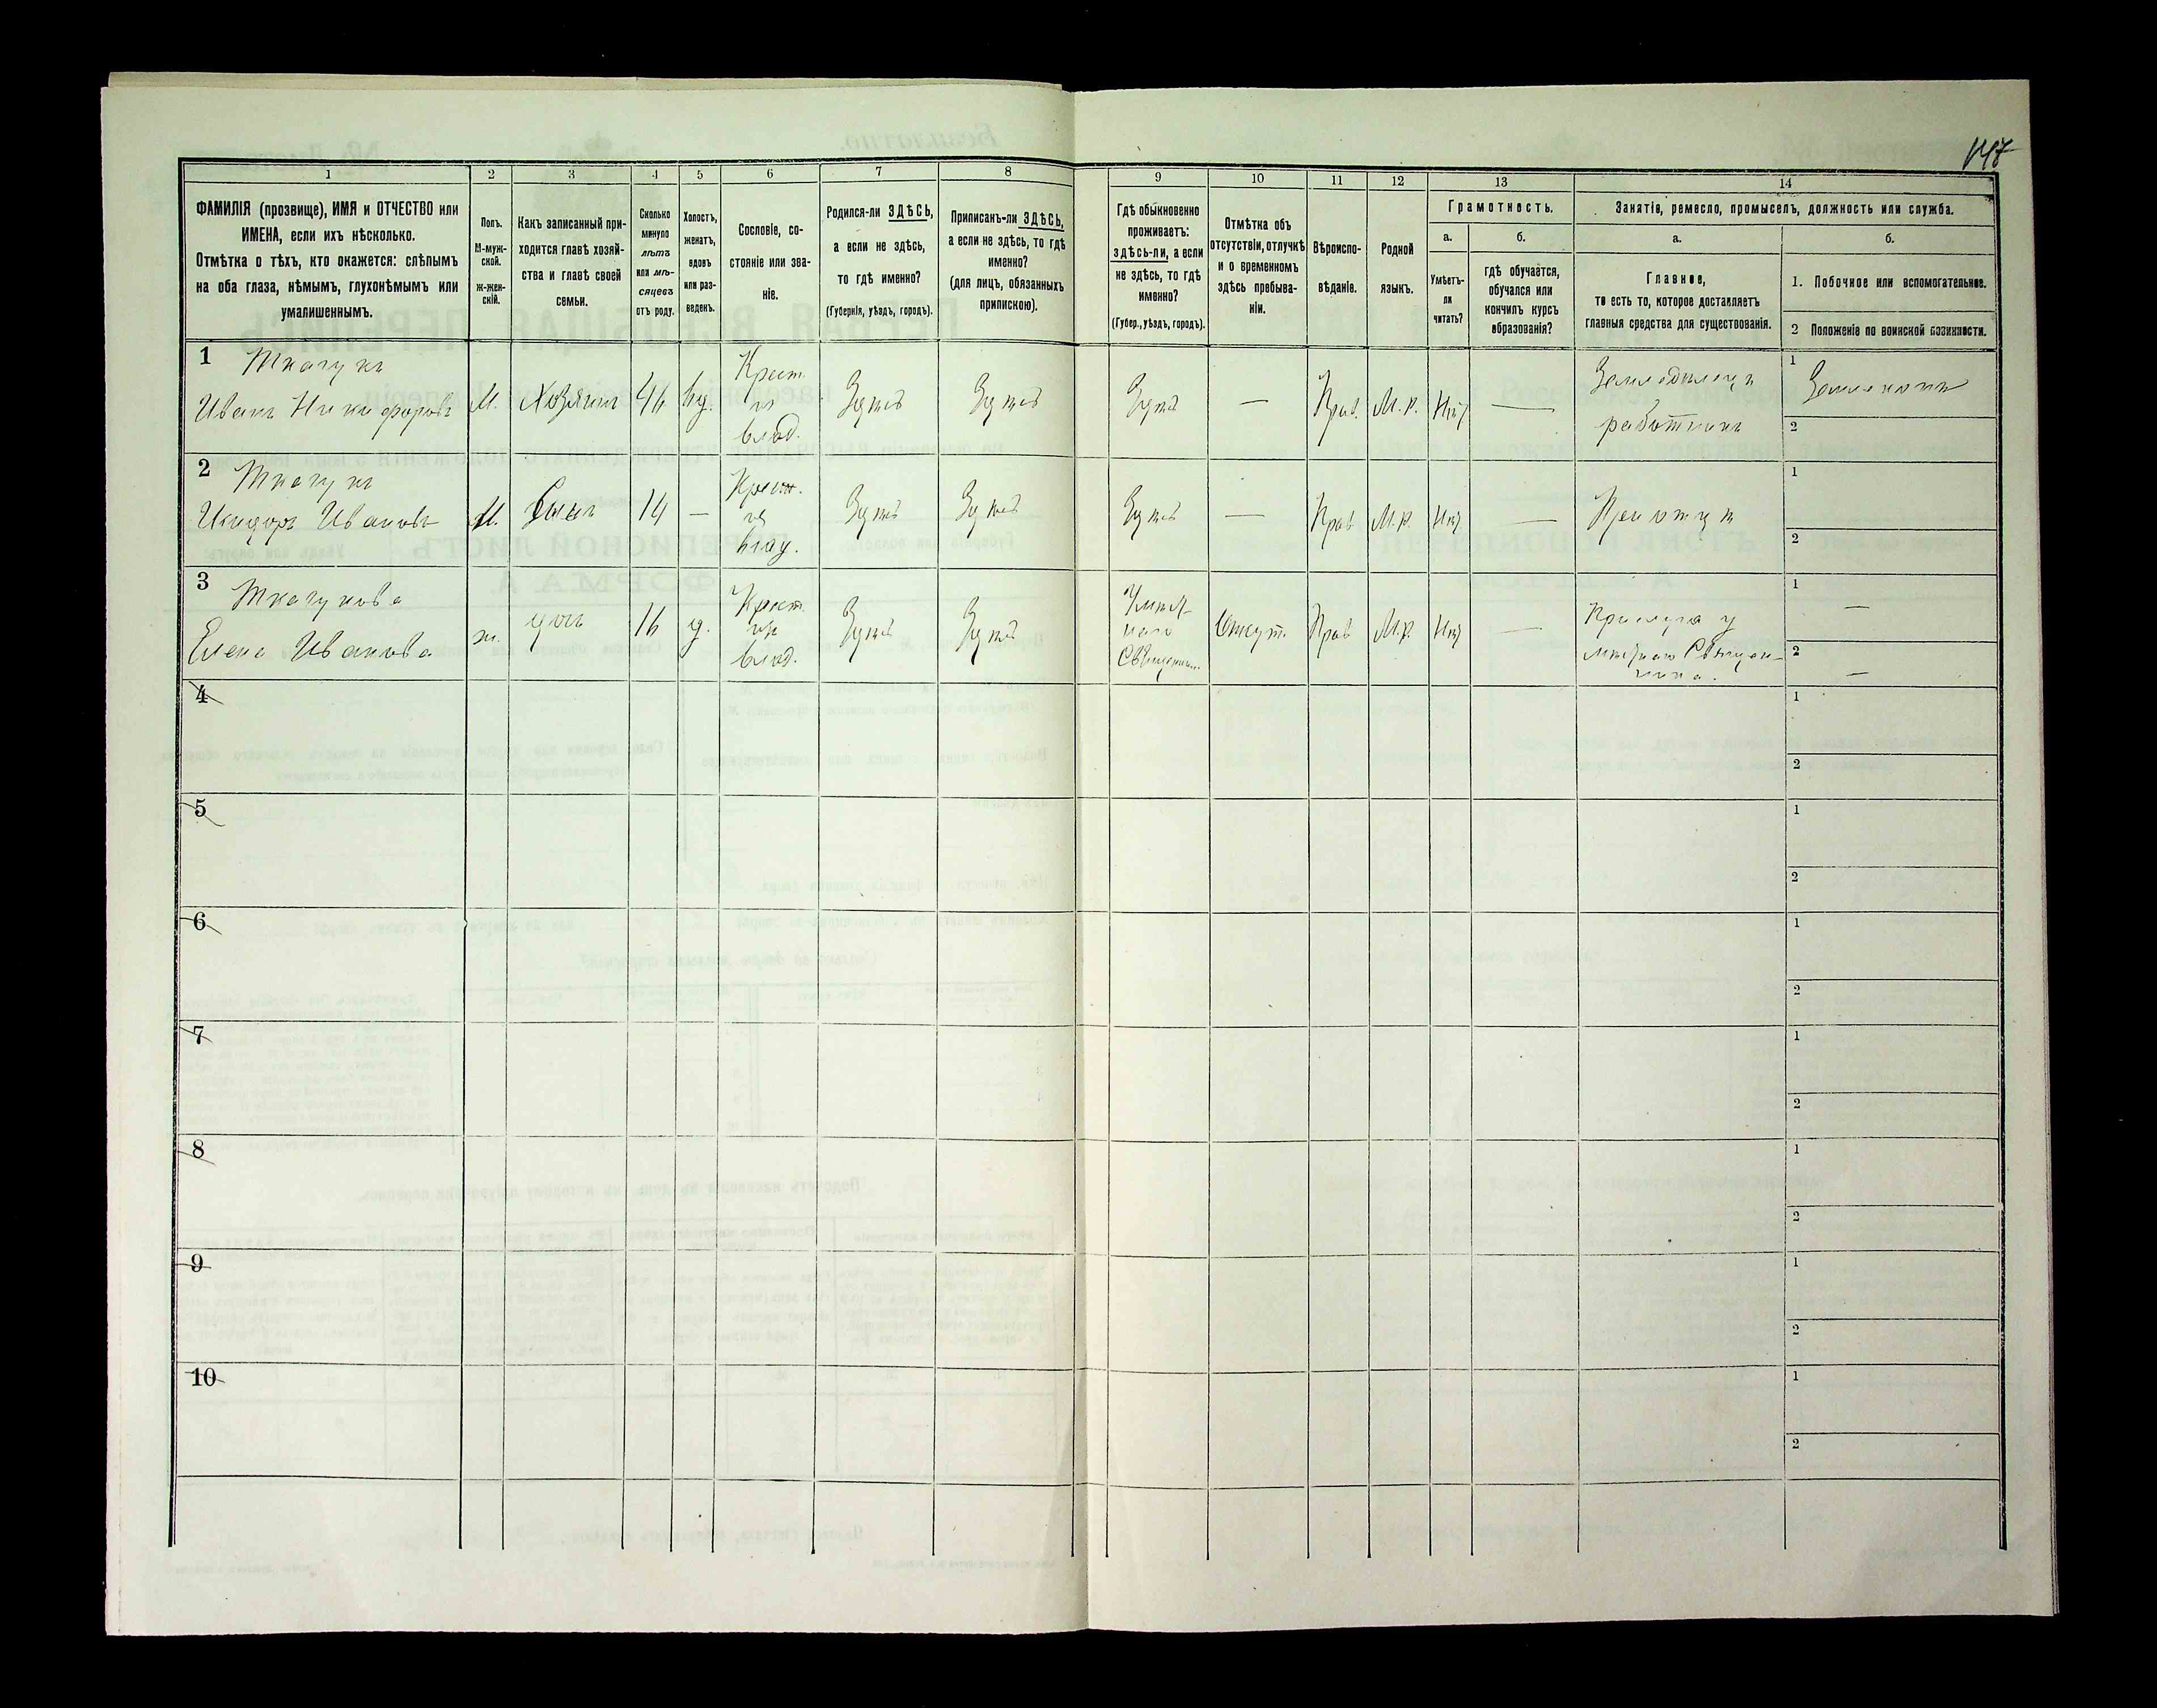 147
1
2
3
4
5
6
7
8
9
10
11
12
13
14
ФАМИЛІЯ (прозвище), ИМЯ и ОТЧЕСТВО или
ИМЕНА, если ихъ нѣсколько.
Отмѣтка о тѣхъ, кто окажется: слѣпымъ
на оба глаза, нѣмымъ, глухонѣмымъ или
умалишеннымъ.
Полъ.
М-муж-
ской.
ж-жен-
скій.
Какъ записанный при-
ходится главѣ хозяй-
ства и главѣ своей
семьи.
Сколько
минуло
лѣтъ
или мѣ-
сяцевъ
отъ роду.
Холостъ,
женатъ,
вдовъ
или раз-
веденъ.
Сословіе, со-
стояніе или зва-
ніе.
Родился-ли ЗДѢСЬ,
а если не здѣсь,
то гдѣ именно?
(Губернія, уѣздъ, городъ).
Приписанъ-ли ЗДѢСЬ,
а если не здѣсь, то гдѣ
именно?
(для лицъ, обязанныхъ
припискою).
Гдѣ обыкновенно
проживаетъ:
здѣсь-ли, а если
не здѣсь, то гдѣ
именно?
(Губер., уѣздъ, городъ).
Отмѣтка объ
отсутствіи, отлучкѣ
и о временномъ
здѣсь пребыва-
ніи.
Вѣроиспо-
вѣданіе.
Родной
языкъ.
Грамотность.
а.
Умѣетъ-
ли
читать?
б.
гдѣ обучается,
обучался или
кончилъ курсъ
образованія?
Занятіе, ремесло, промыселъ, должность или служба.
а.
Главное,
то есть то, которое доставляетъ
главныя средства для существованія.
б.
1. Побочное или вспомогательное.
2 Положеніе по воинской повинности.
1 Ткачукъ
Иванъ Никифоровъ
М.
Хозяинъ
46
вд.
Крест.
из
влад.
Здѣсь
Здѣсь
Здѣсь
—
Прав.
М. р.
Нѣт
—
Земледѣлецъ
работникъ
1
2
2 Ткачукъ
Исидоръ Ивановъ
М.
Сынъ
14
—
Крест.
из
влад.
Здѣсь
Здѣсь
Здѣсь
—
Прав
М. р.
Нѣт
—
1
2
3 Ткачукова
Елена Иванова
ж.
дочь
16
д.
Крест.
из
влад.
Здѣсь
Здѣсь
Священник
Отсут.
Прав
М. р.
Нѣт
—
Прислуга у
мѣстнаго Священ-
ника.
1 —
2 —
4
1
2
5
1
2
6
1
2
7
1
2
8
1
2
9
1
2
10
1
2